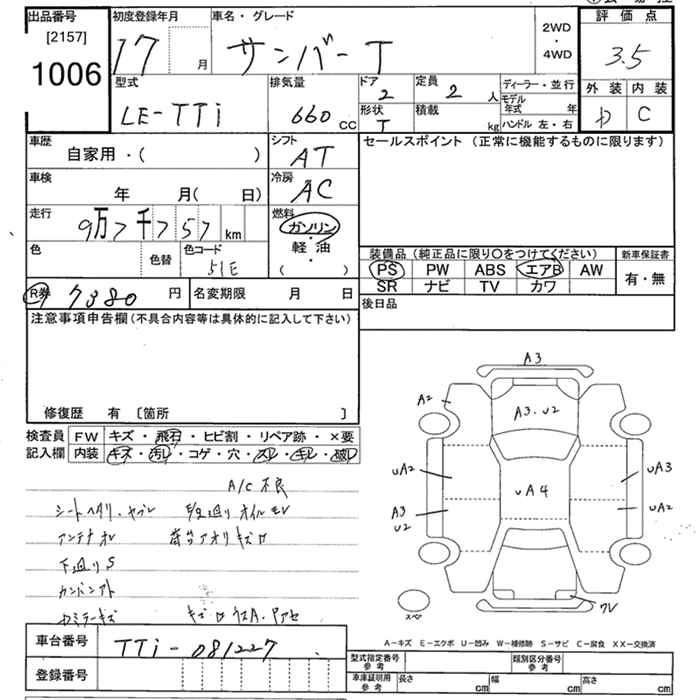 出品番号
[2157]
1006
初度登録年月
17
月
車名・グレード
サンバーT
2WD
・
4WD
評価点
3.5
型式
LE-TT1
排気量
660 CC
ドア
2
定員
2 人
形状
T
積載
kg
ディーラー・並行
モデル年式 年
ハンドル 左・右
外装
D
内装
C
車歴
自家用・( )
シフト
AT
車検
年 月( 日)
冷房
AC
走行
9万7千757 km
燃料
ガソリン
軽・油
・( )
色
色替
色コード
51E
R券 7380 円
名変期限 月 日
セールスポイント(正常に機能するものに限ります)
装備品(純正品に限り〇をつけてください)
PS PW ABS エアB AW
SR ナビ TV カワ
新車保証書
有・無
後日品
注意事項申告欄(不具合内容等は具体的に記入して下さい)
修復歴 有 〔箇所 〕
検査員記入欄
FW キズ・飛石・ヒビ割・リペア跡・×要
内装 キズ・汚レ・コゲ・穴・スレ・キレ・破レ
A/C不良
シートヘタリ・ヤブレ
アンテナオレ
下廻りS
カンバンアト
A3
A2
A3.U2
UA2
UA3
UA4
A3
U2
UA2
スペア
A-キズ E-エクボ U-凹み W-補修跡 S-サビ C-腐食 XX-交換済
車台番号
TT1-081227
登録番号
型式指定番号
参考
類別区分番号
参考
車庫証明用
参考
長さ cm
幅 cm
高さ cm